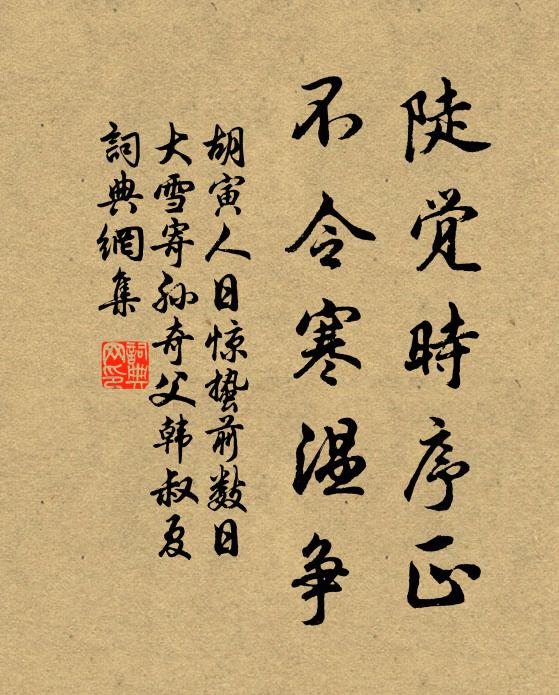 陡觉時序正
不令寒温争
胡寅人日惊蛰前数日
大雪寄孙奇父韩叔夏
詞典網集
詞典网印